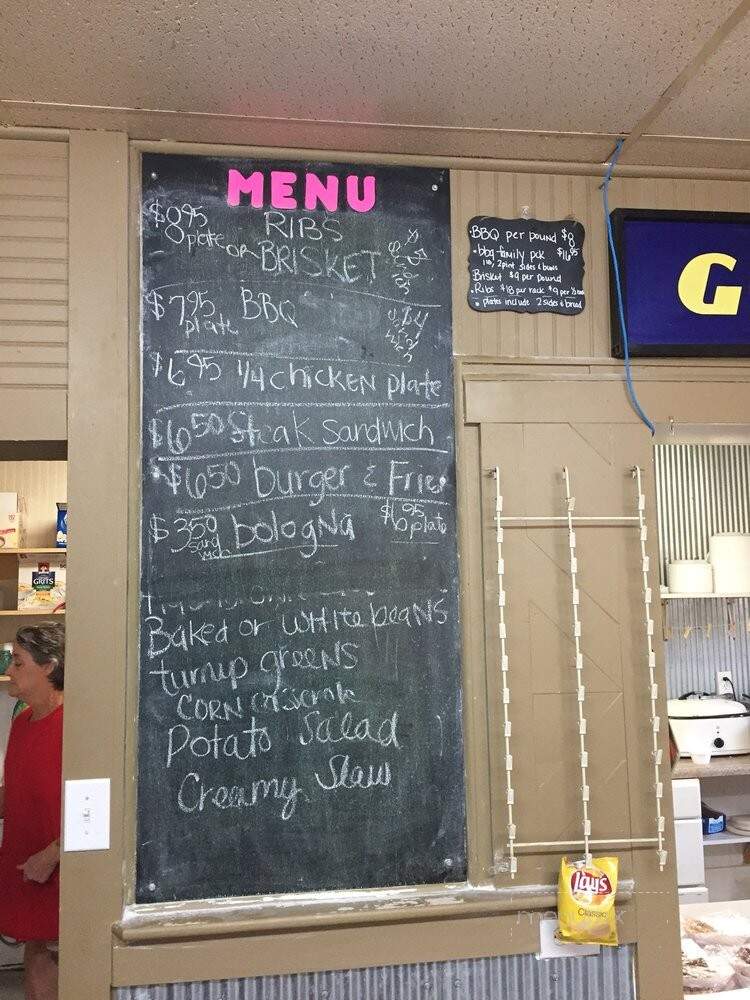 MENU
$8.95 plate RIBS
or BRISKET
$7.95 plate BBQ
$6.95 1/4 chicken plate
$6.50 Steak Sandwich
$6.50 burger & Fries
$3.50 Sandwich bologna $6.95 plate
Baked or white beans
turnip greens
CORN casserole
Potato Salad
Creamy Slaw
• BBQ per pound $8
• bbq family pck $16.95
1 lb, 2 pint sides & buns
Brisket $9 per pound
• Ribs $18 per rack $9 per 1/2 rack
• plates include 2 sides & bread
G
GRITS
Lay's
Classic